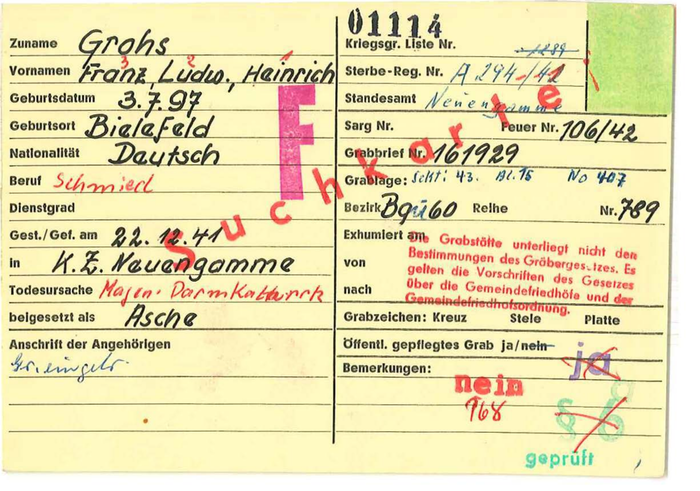 01114
Zuname Grohs
Vornamen Franz, Ludw., Heinrich
3 2 1
Geburtsdatum 3.7.97
Geburtsort Bielefeld
Nationalität Deutsch
Beruf Schmied
Dienstgrad
Gest./Gef. am 22.12.41
in K.Z. Neuengamme
Todesursache Magen-Darmkatharrh
beigesetzt als Asche
Anschrift der Angehörigen
F
Suchkarte!
Kriegsgr. Liste Nr. 1289
Sterbe-Reg. Nr. A 294/42
Standesamt Neuengamme
Sarg Nr. Feuer Nr. 106/42
Grabbrief Nr. 161929
Grablage: Sekt: 43. Bl. 15 No 407
Bezirk Bqü60 Reihe Nr. 789
Exhumiert am
von
nach
Die Grabstätte unterliegt nicht den
Bestimmungen des Gräbergesetzes. Es
gelten die Vorschriften des Gesetzes
über die Gemeindefriedhöfe und der
Gemeindefriedhofsordnung.
Grabzeichen: Kreuz Stele Platte
Öffentl. gepflegtes Grab ja/nein
ja
Bemerkungen:
nein
968
geprüft